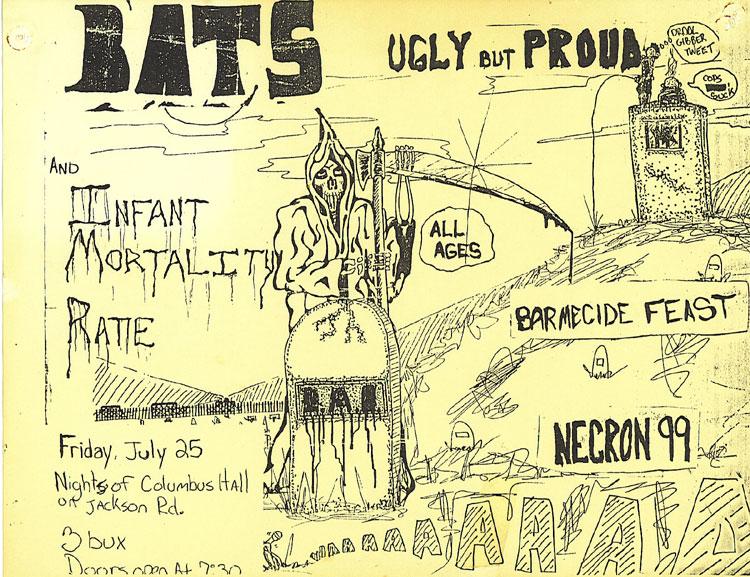 BATS
UGLY BUT PROUD
DROOL
GIBBER
TWEET
COPS
SUCK
AND
INFANT
MORTALITY
RATE
ALL
AGES
BARMECIDE FEAST
NECRON 99
Friday, July 25
Nights of Columbus Hall
on Jackson Rd.
3 bux
Doors open At 7:30